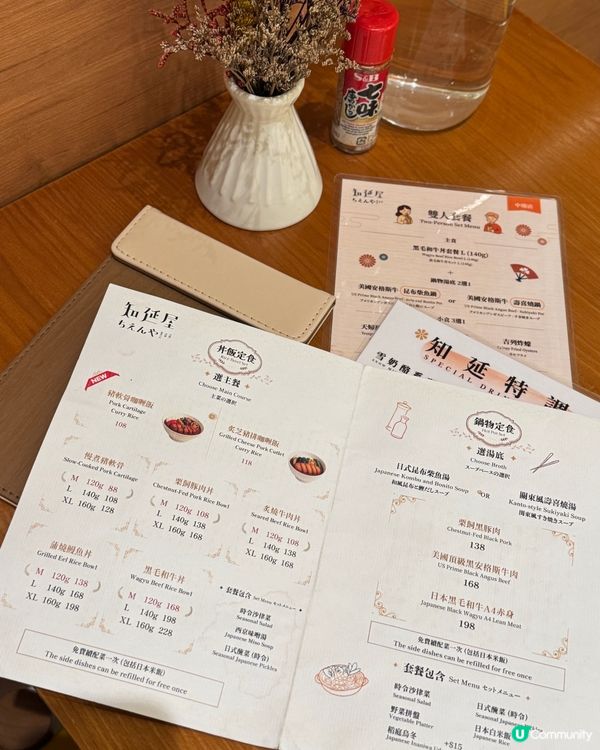 S&B
七味
知延屋
ちえんや
中環店
雙人套餐
Two-Person Set Menu
主食
黑毛和牛丼套餐 L (140g)
Wagyu Beef Rice Bowl L (140g)
+
鍋物湯底 2選1
美國安格斯牛 昆布柴魚鍋 or 美國安格斯牛 壽喜燒鍋
小食 3選1
吉列炸蠔
知延特調
SPECIAL
知延屋
ちえんや
丼飯定食
Rice Bowl Set
選主餐
Choose Main Course
主菜の選択
NEW
豬軟骨咖喱飯
Pork Cartilage
Curry Rice
108
炙芝豬排咖喱飯
Grilled Cheese Pork Cutlet
Curry Rice
118
慢煮豬軟骨
Slow-Cooked Pork Cartilage
M 120g 88
L 140g 108
XL 160g 138
栗飼豚肉丼
Chestnut-Fed Pork Rice Bowl
M 120g 108
L 140g 138
XL 160g 168
炙燒牛肉丼
Seared Beef Rice Bowl
M 120g 108
L 140g 138
XL 160g 168
蒲燒鰻魚丼
Grilled Eel Rice Bowl
M 120g 138
L 140g 168
XL 160g 198
黑毛和牛丼
Wagyu Beef Rice Bowl
M 120g 168
L 140g 198
XL 160g 228
套餐包含 Set Menu セットメニュー
時令沙律菜
Seasonal Salad
西京味噌湯
Japanese Miso Soup
日式醃菜 (時令)
Seasonal Japanese Pickles
免費續配菜一次 (包括日本米飯)
The side dishes can be refilled for free once
鍋物定食
Hot Pot Set
選湯底
Choose Broth
スープベースの選択
日式昆布柴魚湯
Japanese Kombu and Bonito Soup
和風昆布と鰹だしスープ
OR
關東風壽喜燒湯
Kanto-style Sukiyaki Soup
関東風すき焼きスープ
栗飼黑豚肉
Chestnut-Fed Black Pork
138
美國頂級黑安格斯牛肉
US Prime Black Angus Beef
168
日本黑毛和牛A4赤身
Japanese Black Wagyu A4 Lean Meat
198
免費續配菜一次 (包括日本米飯)
The side dishes can be refilled for free once
套餐包含 Set Menu セットメニュー
時令沙律菜
Seasonal Salad
日式醃菜 (時令)
Seasonal Japanese
野菜拼盤
Vegetable Platter
日本白米飯
Japanese Rice
稻庭烏冬
Japanese Inaniwa Udon
+$15
UCommunity